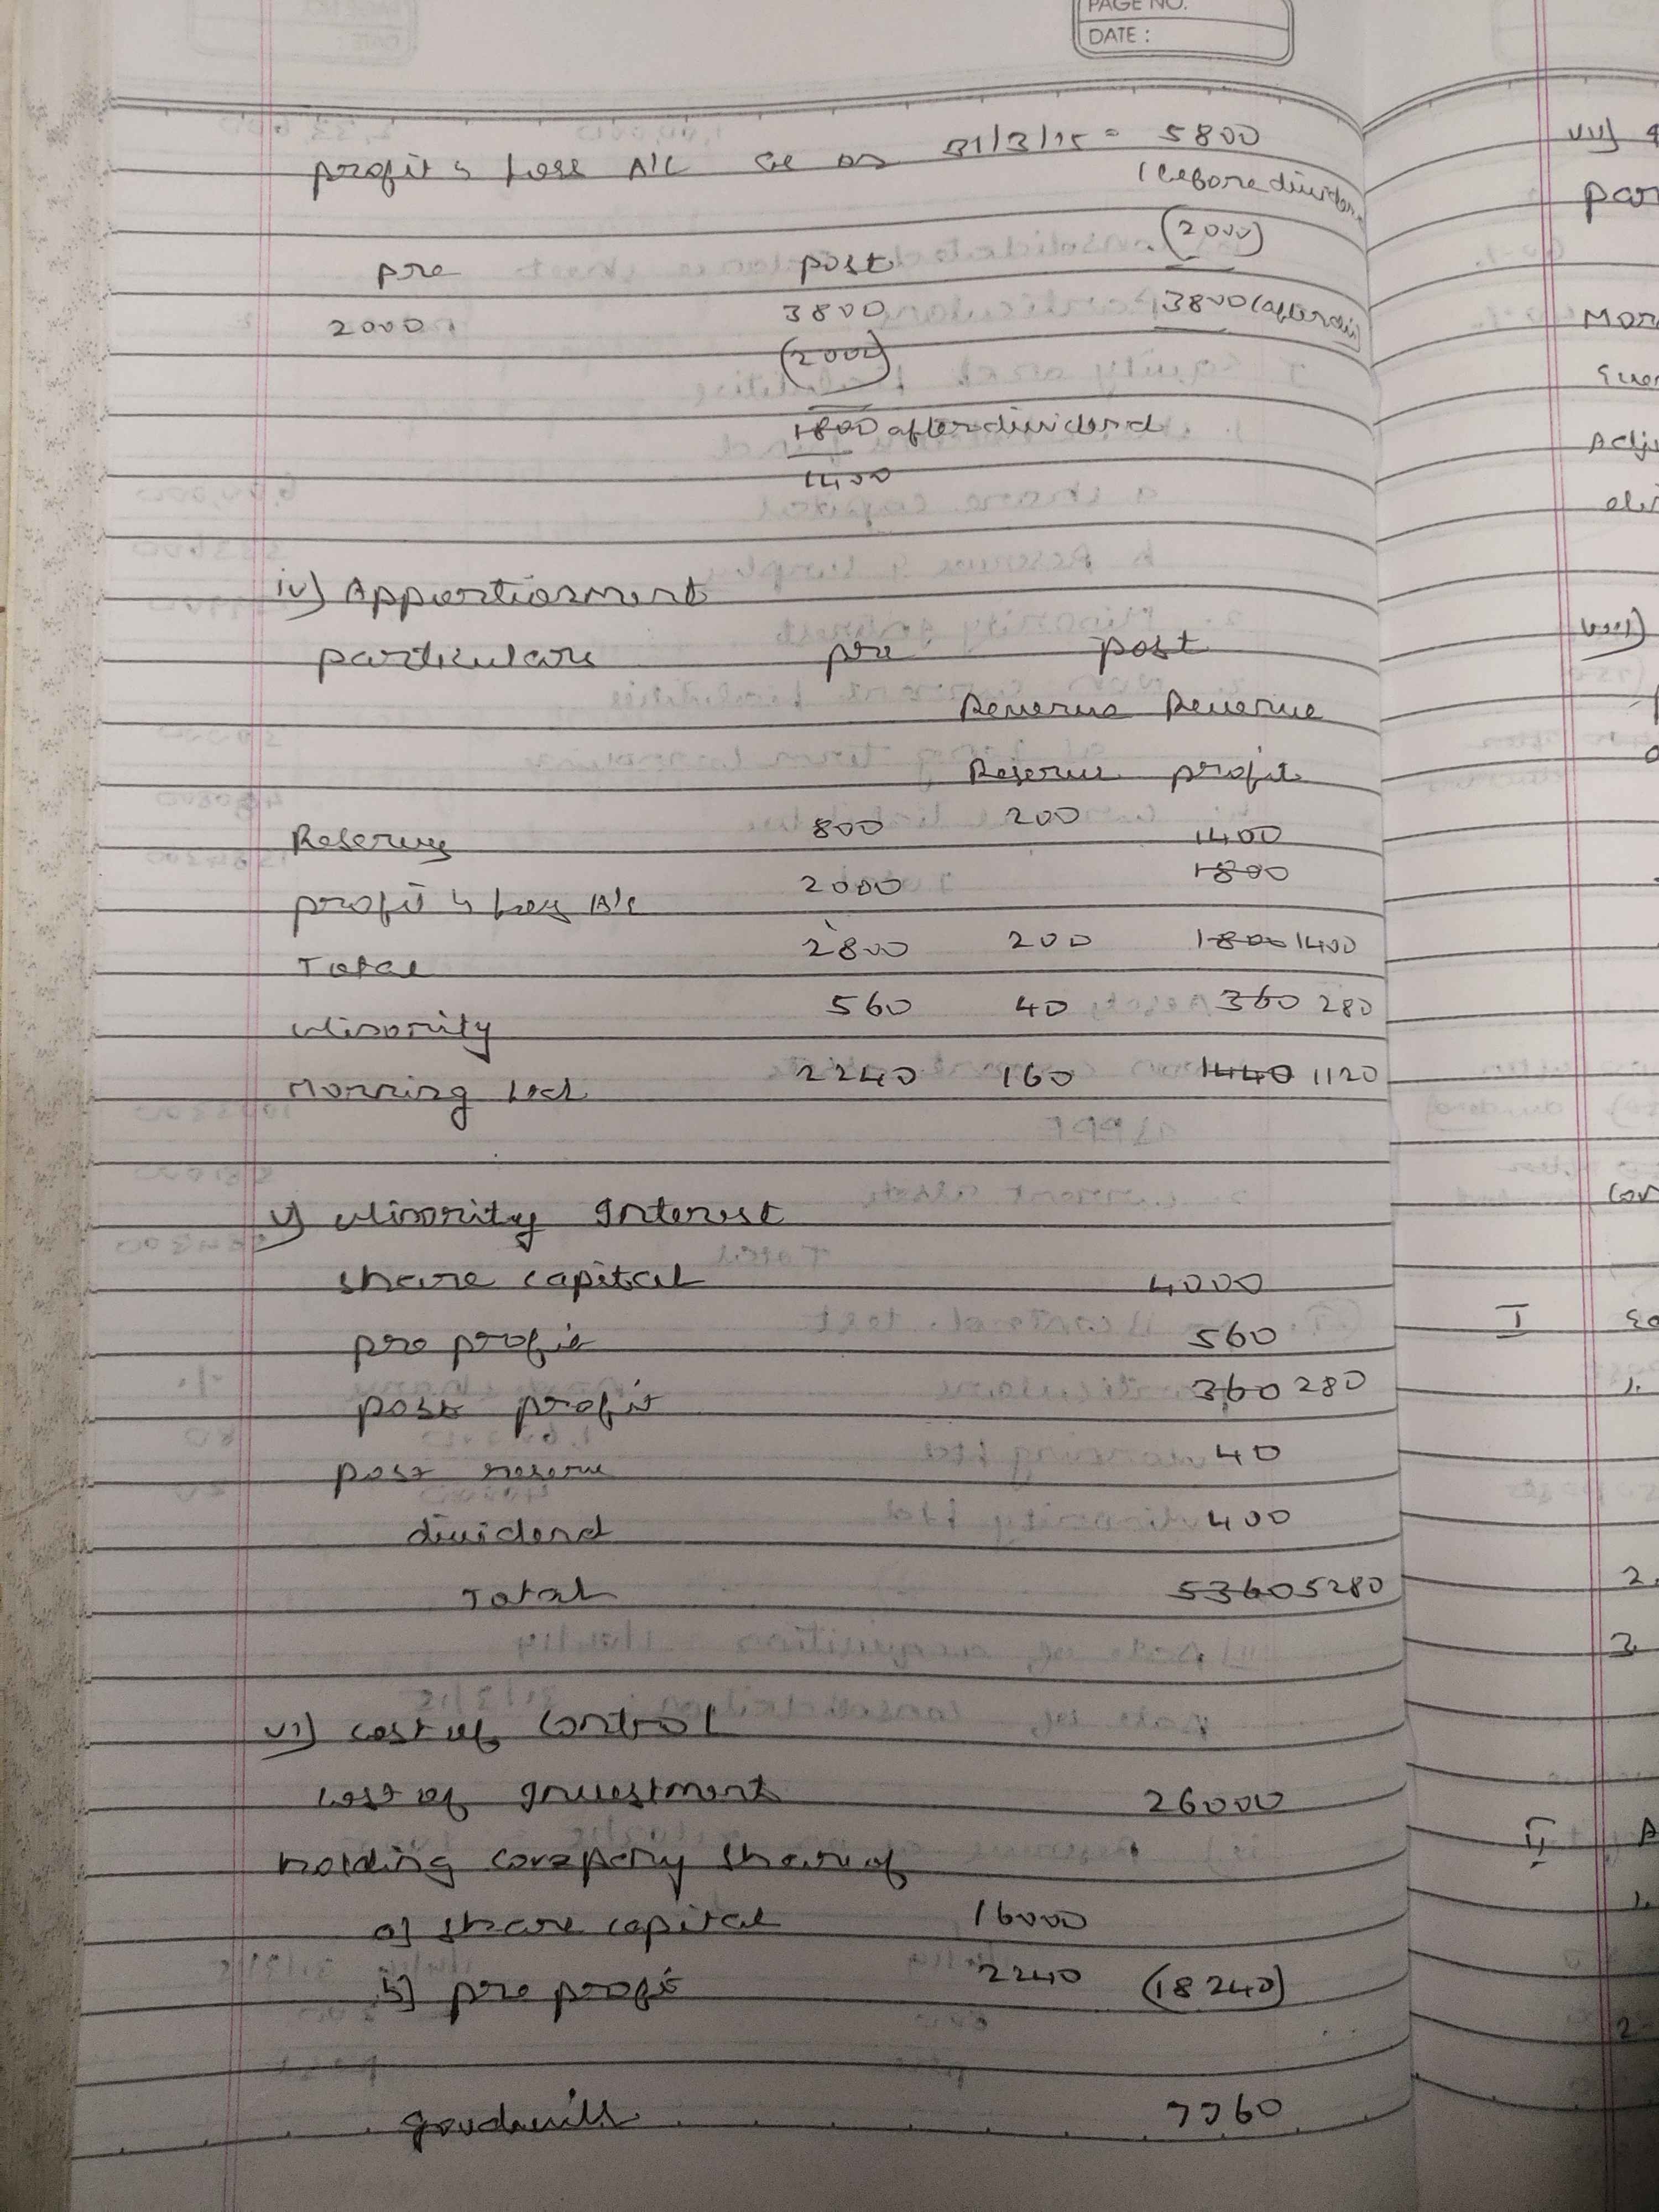 PAGE NO.
DATE :
profit & Loss A/C as on 31/3/15 = 5800
(before dividen
(2000)
pre post
2000 3800 3800 (after div
(2000)
1800 after dividend
1400
iv) Apportionment
particulars pre post
Revenue Revenue
Reserve profit
Reserves 800 200
1400
profit & Loss A/c 2000 1800
Total 2800 200 1800 1400
Minority 560 40 360 280
Morning Ltd 2240 160 1440 1120
v) Minority Interest
share capital 4000
pre profit 560
post profit 360 280
post reserve 40
dividend 400
Total 5360 5280
vi) cost of control
cost of Investment 26000
Holding company share of
a) share capital 16000
b) pre profit 2240 (18240)
goodwill 7760
vii)
par
Mor
Adju
viii)
I
1.
2.
3.
II
1.
2.